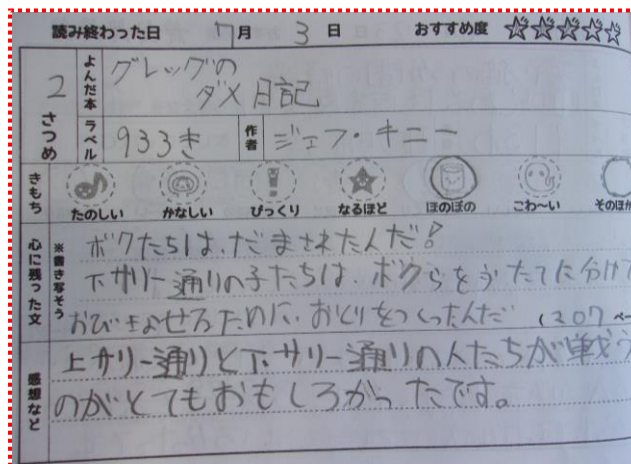 読み終わった日 7月 3日 おすすめ度
2さつめ
よんだ本 グレッグの
ダメ日記
ラベル 933き 作者 ジェフ・キニー
きもち たのしい かなしい びっくり なるほど ほのぼの こわ〜い そのほか
心に残った文 ※書き写そう
ボクたちは、だまされたんだ!
下サリー通りの子たちは、ボクらを
たてに分けて
おびきよせるために、おとりをつくったんだ (207ペー
感想など
上サリー通りと下サリー通りの人たちが戦う
のがとてもおもしろかったです。